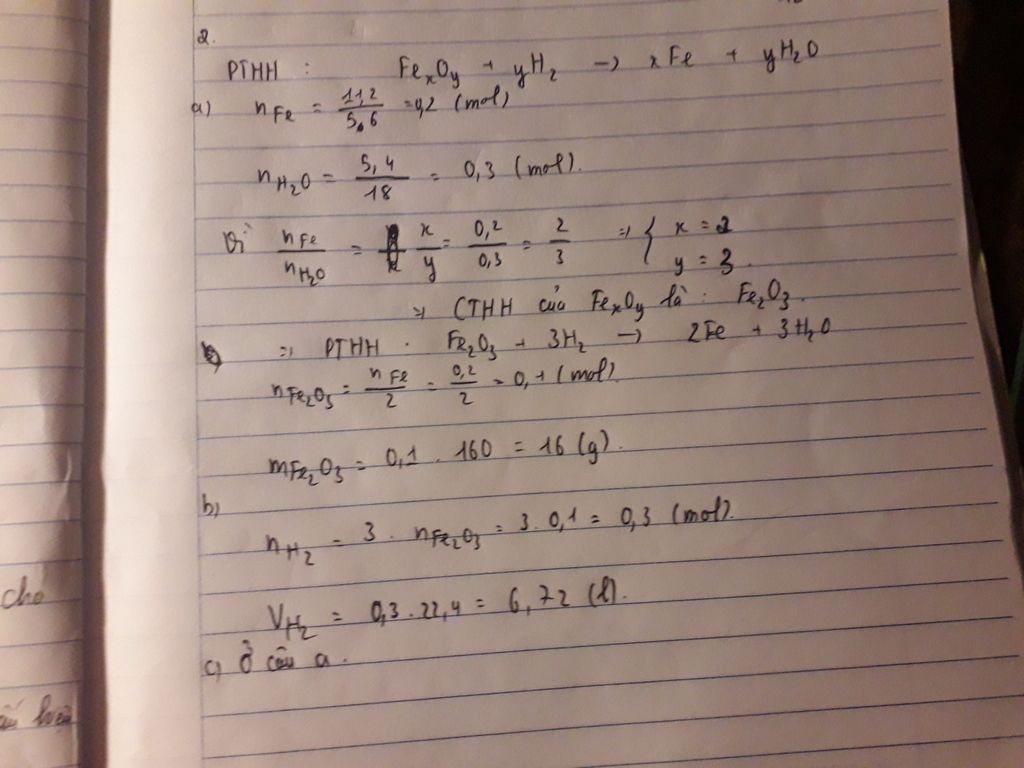 2.
PTHH : FexOy + yH2 → xFe + yH2O
a) nFe = 11,2/5.6 = 0,2 (mol)
nH2O = 5,4/18 = 0,3 (mol).
Vì nFe/nH2O = x/y = 0,2/0,3 = 2/3 => { x = 2 y = 3.
=> CTHH của FexOy là : Fe2O3.
=> PTHH : Fe2O3 + 3H2 → 2Fe + 3H2O
nFe2O3 = nFe/2 = 0,2/2 = 0,1 (mol).
mFe2O3 = 0,1 . 160 = 16 (g).
b)
nH2 = 3 . nFe2O3 = 3 . 0,1 = 0,3 (mol).
VH2 = 0,3 . 22,4 = 6,72 (l).
c) Ở câu a.
cho